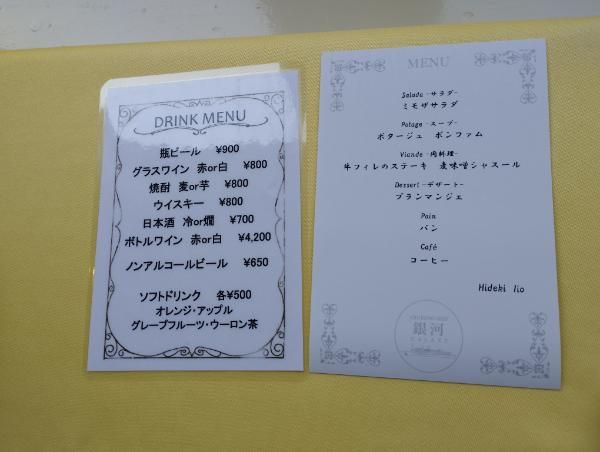 DRINK MENU
瓶ビール ¥900
グラスワイン 赤or白 ¥800
焼酎 麦or芋 ¥800
ウイスキー ¥800
日本酒 冷or燗 ¥700
ボトルワイン 赤or白 ¥4,200
ノンアルコールビール ¥650
ソフトドリンク 各¥500
オレンジ・アップル
グレープフルーツ・ウーロン茶
MENU
Salada -サラダ-
ミモザサラダ
Potage -スープ-
ポタージュ ボンファム
Viande -肉料理-
牛フィレのステーキ 麦味噌シャスール
Dessert -デザート-
ブランマンジェ
Pain
パン
Café
コーヒー
Hideki Iio
銀河